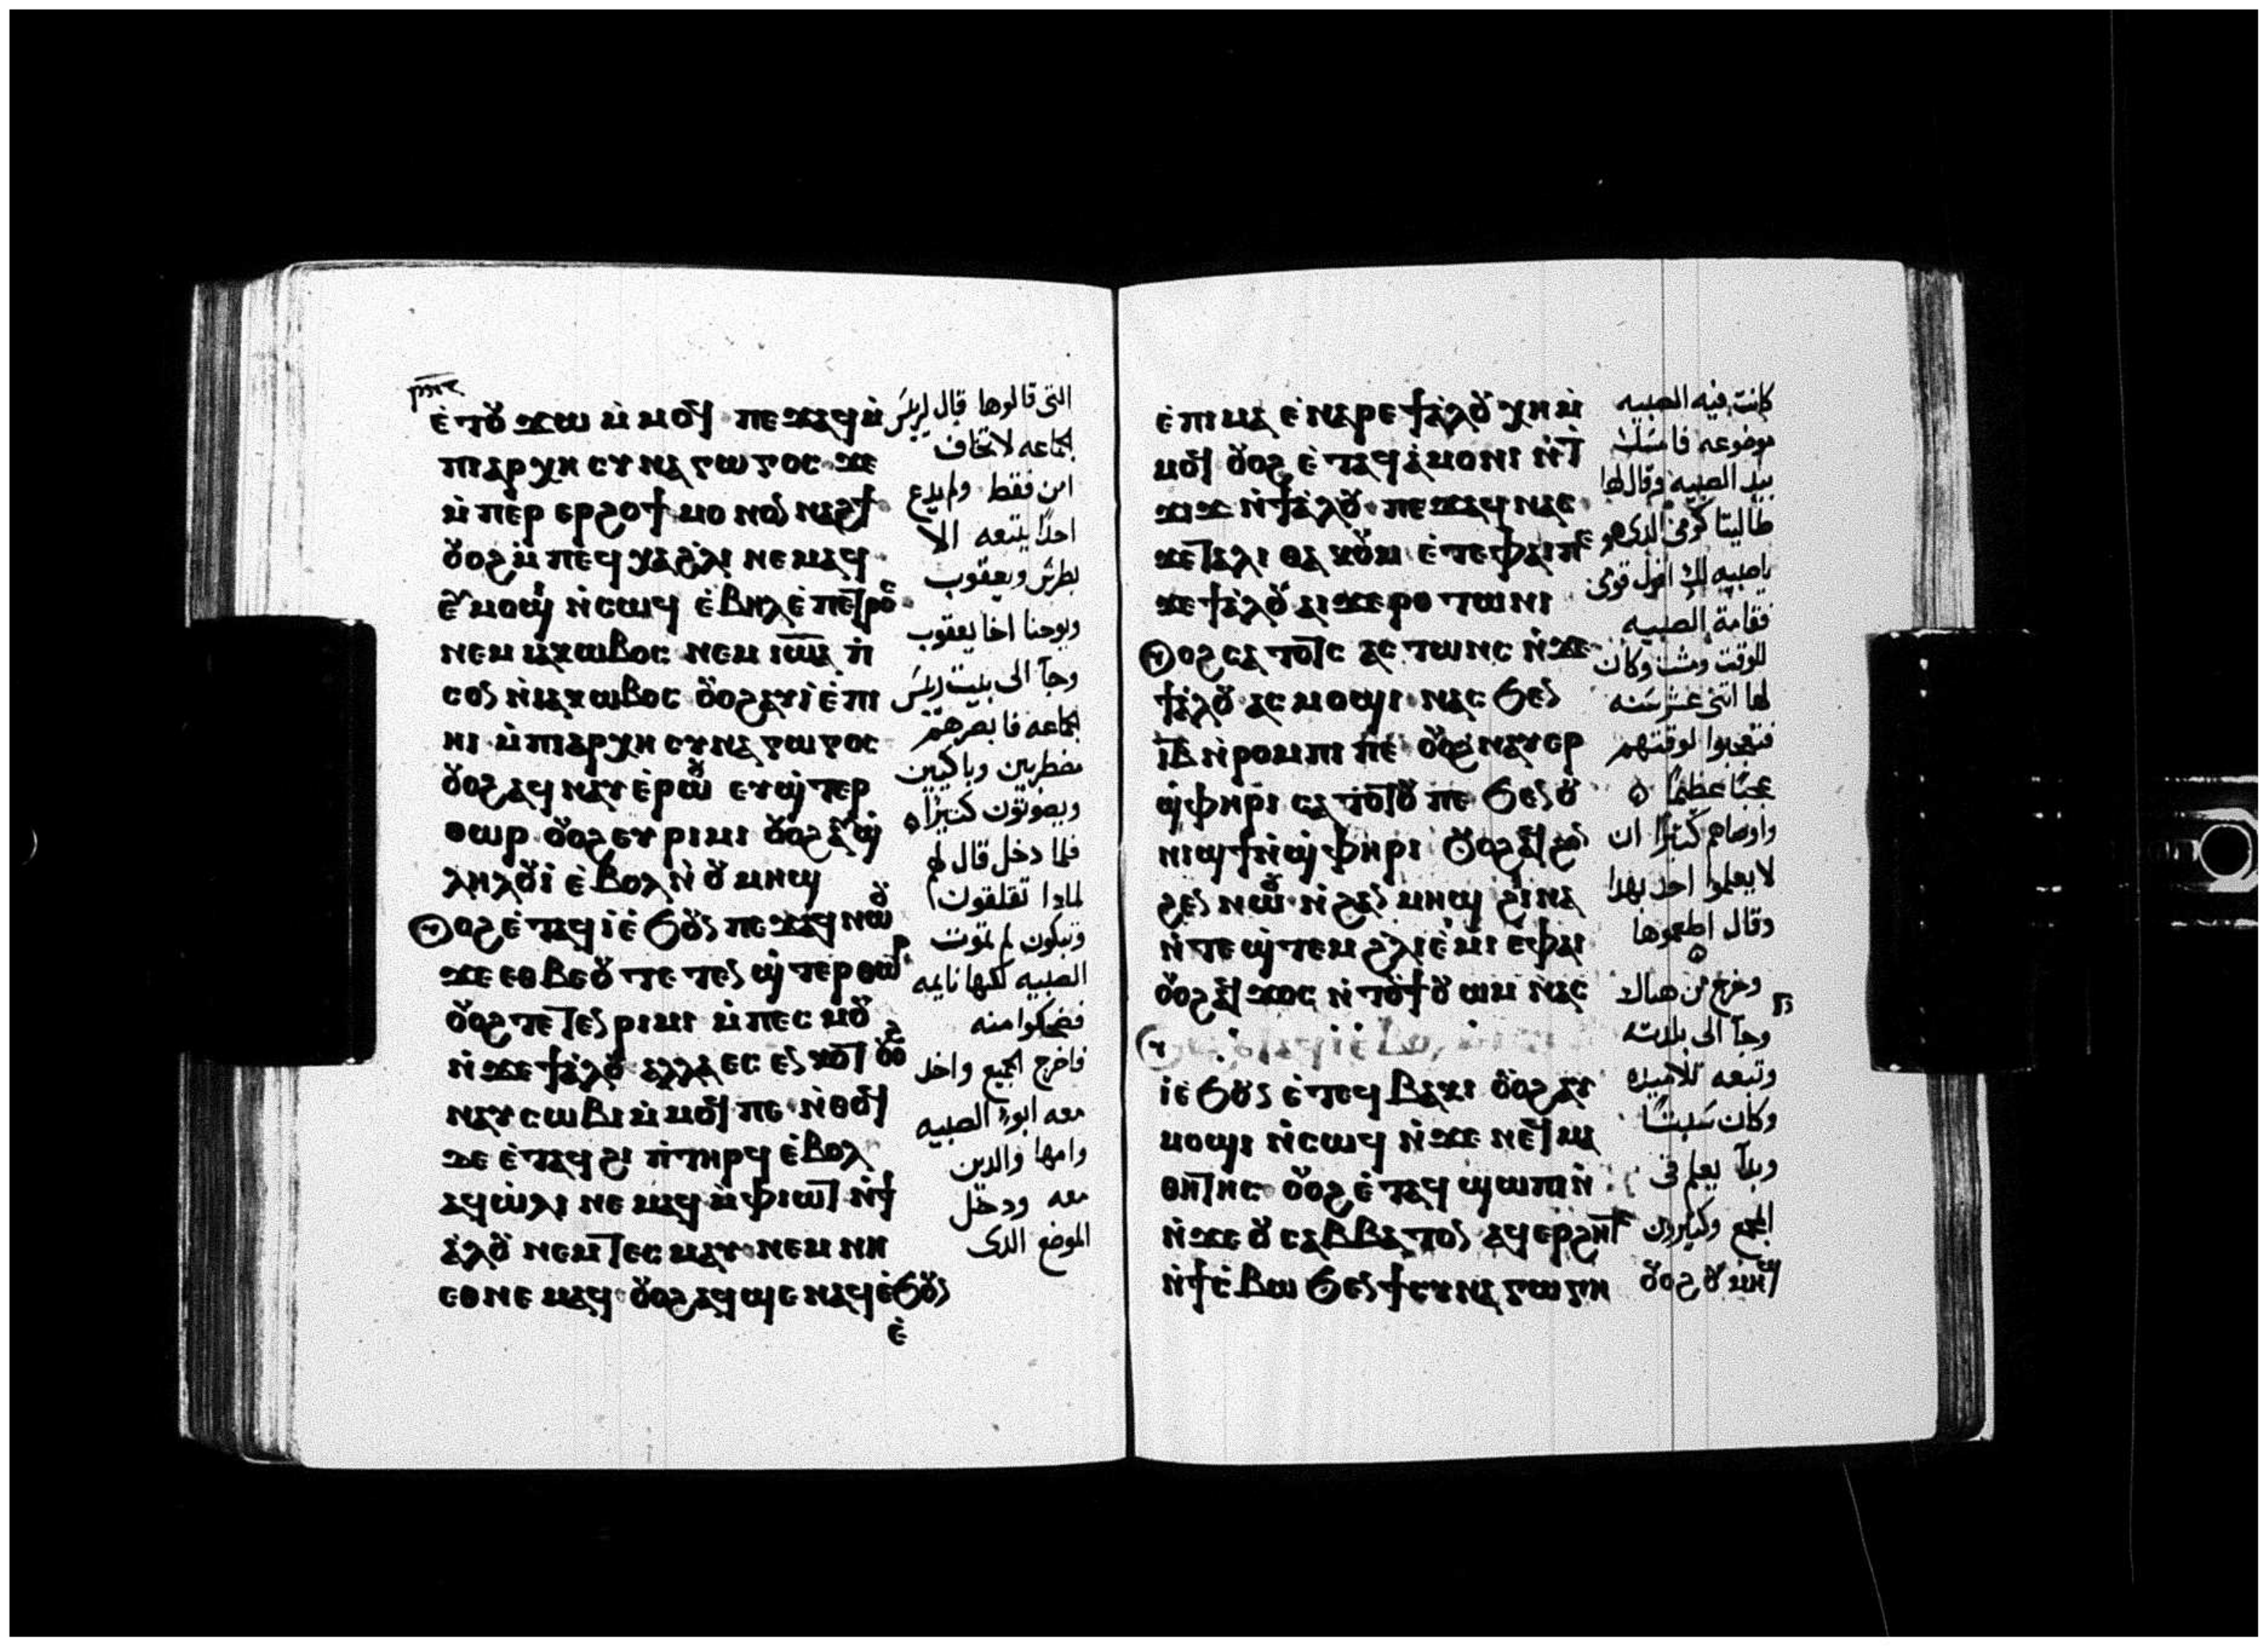 ⲉ̇ⲧⲟⲩϫⲱ ⲙ̇ⲙⲟϥ ⲡⲉϫⲁϥ ⲙ̇
ⲡⲓⲁⲣⲭⲏⲥⲩⲛⲁⲅⲱⲅⲟⲥ ϫⲉ
ⲙ̇ⲡⲉⲣ ⲉⲣϩⲟϯ ⲙⲟⲛⲟⲛ ⲛⲁϩϯ
ⲟⲩⲟϩ ⲙ̇ⲡⲉϥⲭⲁ ϩ̇ⲗⲓ ⲛⲉⲙⲁϥ
ⲉ̇ⲙⲟϣⲓ ⲛ̇ⲥⲱϥ ⲉ̇ⲃⲏⲗ ⲉ̇ⲡⲉⲧⲣⲟⲥ
ⲛⲉⲙ ⲓⲁⲕⲱⲃⲟⲥ ⲛⲉⲙ ⲓⲱⲁ ⲡ̇
ⲥⲟⲛ ⲛ̇ⲓⲁⲕⲱⲃⲟⲥ ⲟⲩⲟϩ ⲁⲩⲓ̇ ⲉ̇ⲡⲓ
ⲏⲓ ⲙ̇ⲡⲓⲁⲣⲭⲏⲥⲩⲛⲁⲅⲱⲅⲟⲥ
ⲟⲩⲟϩ ⲁϥⲛⲁⲩ ⲉ̇ⲣⲱⲟⲩ ⲉⲩϣ̇ⲧⲉⲣ
ⲑⲱⲣ ⲟⲩⲟϩ ⲉⲩⲣⲓⲙⲓ ⲟⲩⲟϩ ⲁⲩϣ̇
ⲗⲏⲗⲟⲩⲓ̇ ⲉ̇ⲃⲟⲗ ⲛ̇ⲟⲩⲙⲏϣ
ⲟⲩⲟϩ ⲉ̇ⲧⲁϥⲓ̇ ⲉ̇ϧⲟⲩⲛ ⲡⲉϫⲁϥ ⲛⲱⲟⲩ
ϫⲉ ⲉⲑⲃⲉⲟⲩ ⲧⲉⲧⲉⲛϣ̇ⲧⲉⲣⲑⲱⲣ
ⲟⲩⲟϩ ⲧⲉⲧⲉⲛⲣⲓⲙⲓ ⲙ̇ⲡⲉⲥⲙⲟⲩ
ⲛ̇ϫⲉ ϯⲁ̇ⲗⲟⲩ ⲁⲗⲗⲁ ⲉⲥⲉⲛⲕⲟⲧ ⲟⲩⲟϩ
ⲛⲁⲩⲥⲱⲃⲓ ⲙ̇ⲙⲟϥ ⲡⲉ ⲛ̇ⲑⲟϥ
ϫⲉ ⲉ̇ⲧⲁϥϩⲓ ⲡ̇ⲧⲏⲣϥ ⲉ̇ⲃⲟⲗ
ⲁϥⲱ̇ⲗⲓ ⲛⲉⲙⲁϥ ⲙ̇ⲫⲓⲱⲧ ⲛ̇ϯ
ⲁ̇ⲗⲟⲩ ⲛⲉⲙ ⲧⲉⲥⲙⲁⲩ ⲛⲉⲙ ⲛⲏ
ⲉⲑⲛⲉⲙⲁϥ ⲟⲩⲟϩ ⲁϥϣⲉ ⲛⲁϥ ⲉ̇ϧⲟⲩⲛ
ⲉ̇
التى قالوها قال لريس
الجماعه لا تخاف
امن فقط ولم يدع
احدا يتبعه الا
بطرس ويعقوب
ويوحنا اخا يعقوب
وجا الى بيت ريس
الجماعه فابصرهم
مضطربين وباكيين
ويصوتون كتيرا
فلما دخل قال لهم
لمادا تقلقون
وتبكون لم تموت
الصبيه لكنها نايمه
فضحكوا منه
فاخرج الجميع واخد
معه ابو الصبيه
وامها والدين
معه ودخل
الموضع الدى
ⲉ̇ⲡⲓⲙⲁ ⲉ̇ⲛⲁⲣⲉ ϯⲁ̇ⲗⲟⲩ ⲭⲏ ⲙ̇
ⲙⲟϥ ⲟⲩⲟϩ ⲉ̇ⲧⲁϥⲁ̇ⲙⲟⲛⲓ ⲛ̇ⲧ
ϫⲓϫ ⲛ̇ϯⲁ̇ⲗⲟⲩ ⲡⲉϫⲁϥ ⲛⲁⲥ
ϫⲉ ⲧⲁⲗⲓⲑⲁ ⲕⲟⲩⲙ ⲉ̇ⲧⲉ ⲫⲁⲓ ⲡⲉ
ϫⲉ ϯⲁ̇ⲗⲟⲩ ⲁⲓϫⲉⲣⲟ ⲧⲱⲛⲓ
ⲟⲩⲟϩ ⲥⲁⲧⲟⲧⲥ ⲁⲥⲧⲱⲛⲥ ⲛ̇ϫⲉ
ϯⲁ̇ⲗⲟⲩ ⲁⲥⲙⲟϣⲓ ⲛⲁⲥ ϧⲉⲛ
ⲓⲃ ⲛ̇ⲣⲟⲙⲡⲓ ⲡⲉ ⲟⲩⲟϩ ⲛⲁⲩⲉⲣ
ϣ̇ⲫⲏⲣⲓ ⲥⲁⲧⲟⲧⲟⲩ ⲡⲉ ϧⲉⲛ ⲟⲩ
ⲛⲓϣϯ ⲛ̇ϣ̇ⲫⲏⲣⲓ ⲟⲩⲟϩ ⲁϥϩⲟⲛ
ϩⲉⲛ ⲛⲱⲟⲩ ⲛ̇ϩⲁⲛⲙⲏϣ ϩⲓⲛⲁ
ⲛ̇ⲧⲉϣ̇ⲧⲉⲙ ϩ̇ⲗⲓ ⲉ̇ⲙⲓ ⲉ̇ⲫⲁⲓ
ⲟⲩⲟϩ ⲁϥϫⲟⲥ ⲛ̇ⲧⲟⲩϯ ⲟⲩⲱⲙ ⲛⲁⲥ
ⲓ̇ ⲉ̇ϧⲟⲩⲛ ⲉ̇ⲧⲉϥⲃⲁⲕⲓ ⲟⲩⲟϩ ⲁⲩ
ⲙⲟϣⲓ ⲛ̇ⲥⲱϥ ⲛ̇ϫⲉ ⲛⲉϥⲙⲁ
ⲑⲏⲧⲏⲥ ⲟⲩⲟϩ ⲉ̇ⲧⲁϥϣⲱⲡⲓ
ⲛ̇ϫⲉ ⲟⲩⲥⲁⲃⲃⲁⲧⲟⲛ ⲁϥⲉⲣϩⲏⲧⲥ
ⲛ̇ϯⲥ̇ⲃⲱ ϧⲉⲛ ϯⲥⲩⲛⲁⲅⲱⲅⲏ ⲟⲩⲟϩ ⲟⲩⲙⲏϣ
كانت فيه الصبيه
موضوعه فامسك
بيد الصبيه وقال لها
طاليتا كومى الدى هو
ياصبيه لك اقول قومى
فقامة الصبيه
للوقت ومشت وكان
لها اتنى عشر سنه
فتعجبوا لوقتهم
عجبا عظيما
واوصاهم كتيرا ان
لا يعلموا احد بهدا
وقال اطعموها
وخرج من هناك
وجا الى بلدته
وتبعه تلاميده
وكان سبتا
وبدا يعلم فى
المجمع وكتيرون